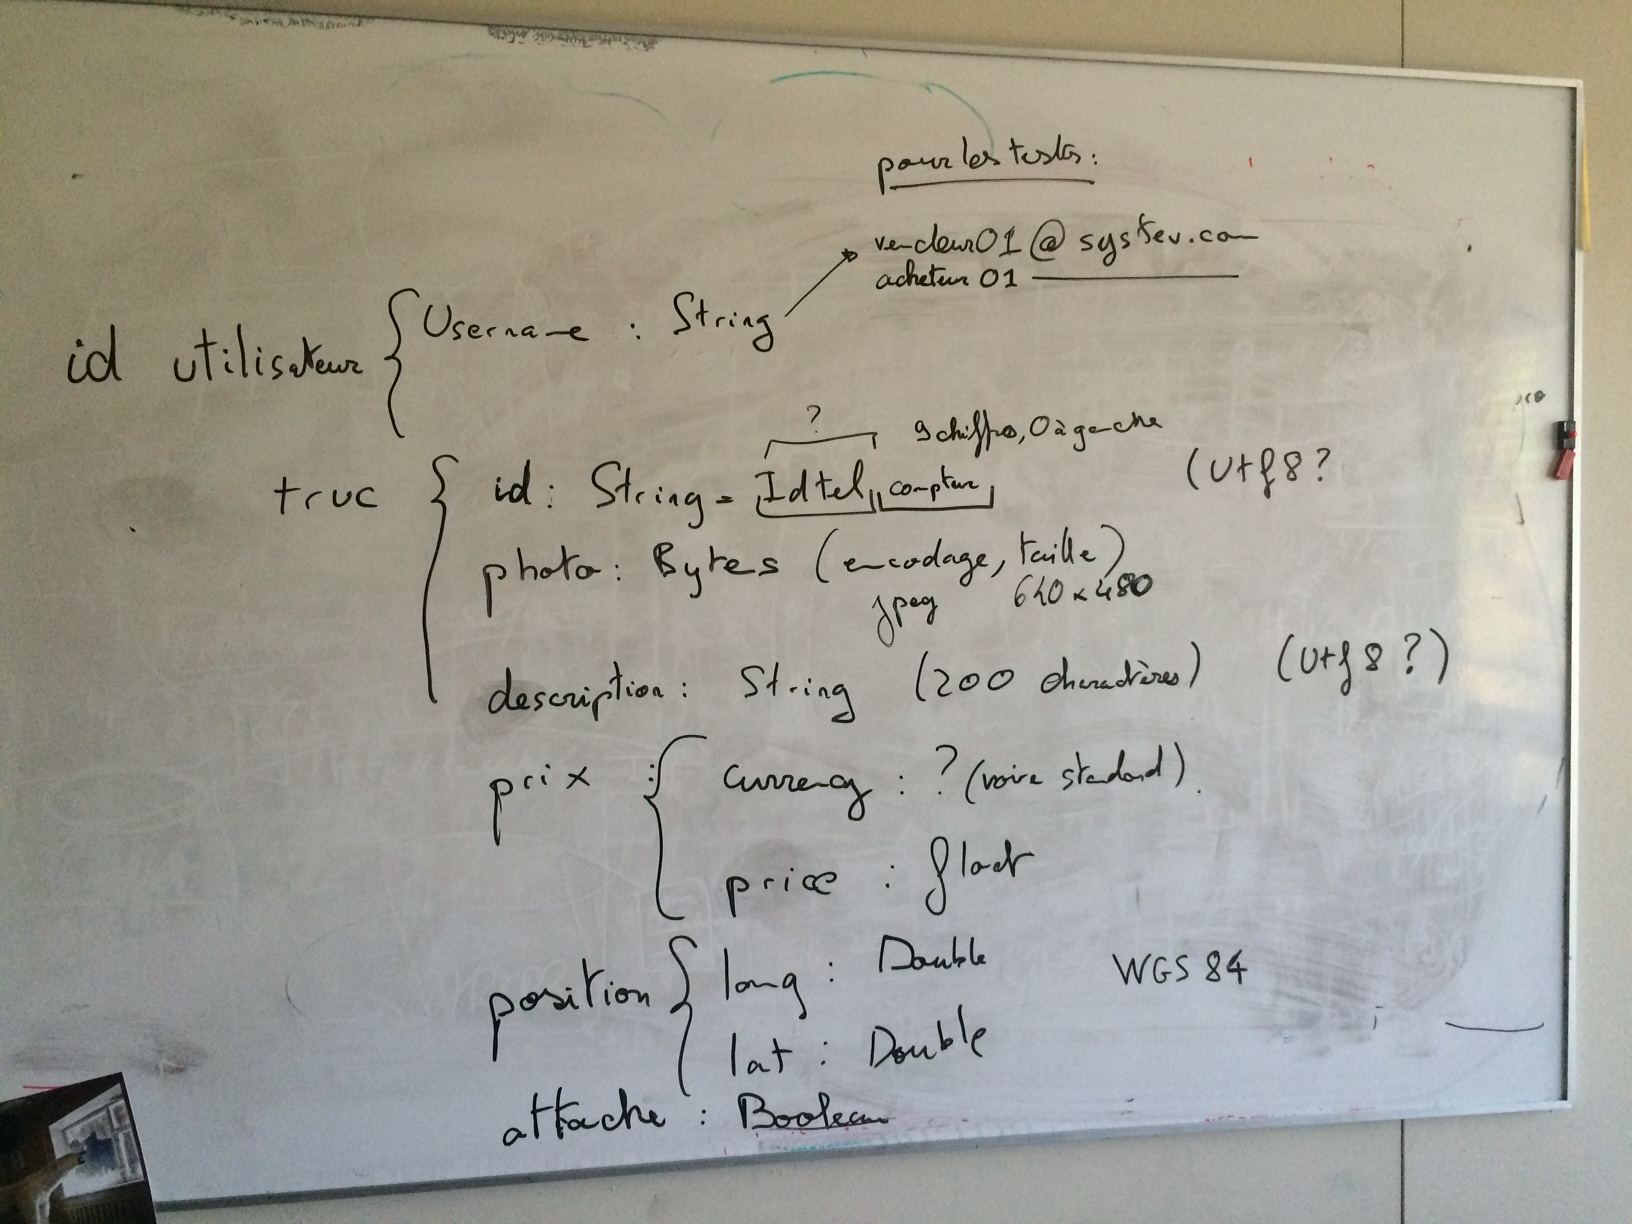 pour les tests :
vendeur01 @ systev.com
acheteur 01
id utilisateur { Username : String
? 9 chiffres, 0 à gauche
truc { id : String = Idtel compteur (Utf8 ?
photo : Bytes (encodage, taille)
jpeg 640 x 480
description : String (200 charactères) (Utf8 ?)
prix : { currency : ? (voire standard).
price : float
position { long : Double WGS 84
lat : Double
attache : Boolean